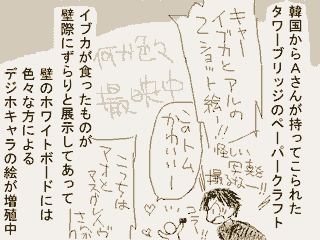 韓国からAさんが持ってこられた
タワーブリッジのペーパークラフト
キャー
イブカとアルの
2ショット絵ー!!
怪しい写真を
撮るなー!!
このトム
かわいいー
何か色々
撮影中
こっちは
アオと
マスグレイヴ
イブカが食ったものが
壁際にずらりと展示してあって
壁のホワイトボードには
色々な方による
デジホキャラの絵が増殖中